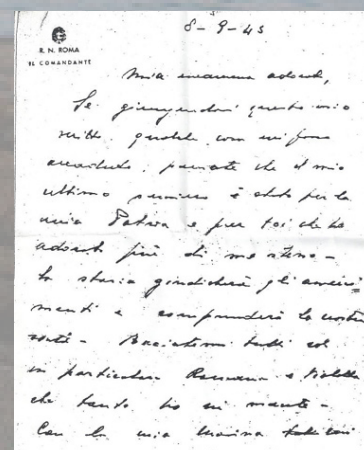 8-9-43
R. N. ROMA
IL COMANDANTE
Mia mamma adorata,
Se giungendovi questo mio
scritto, qualche cosa mi fosse
accaduto, pensate che il mio
ultimo pensiero è stato per la
mia Patria e per voi che ho
adorato più di me stesso -
la storia giudicherà gli avveni-
menti e comprenderà la nostra
- Baciatemi tutti
in particolare e
che tanto ho in mente -
Con la mia